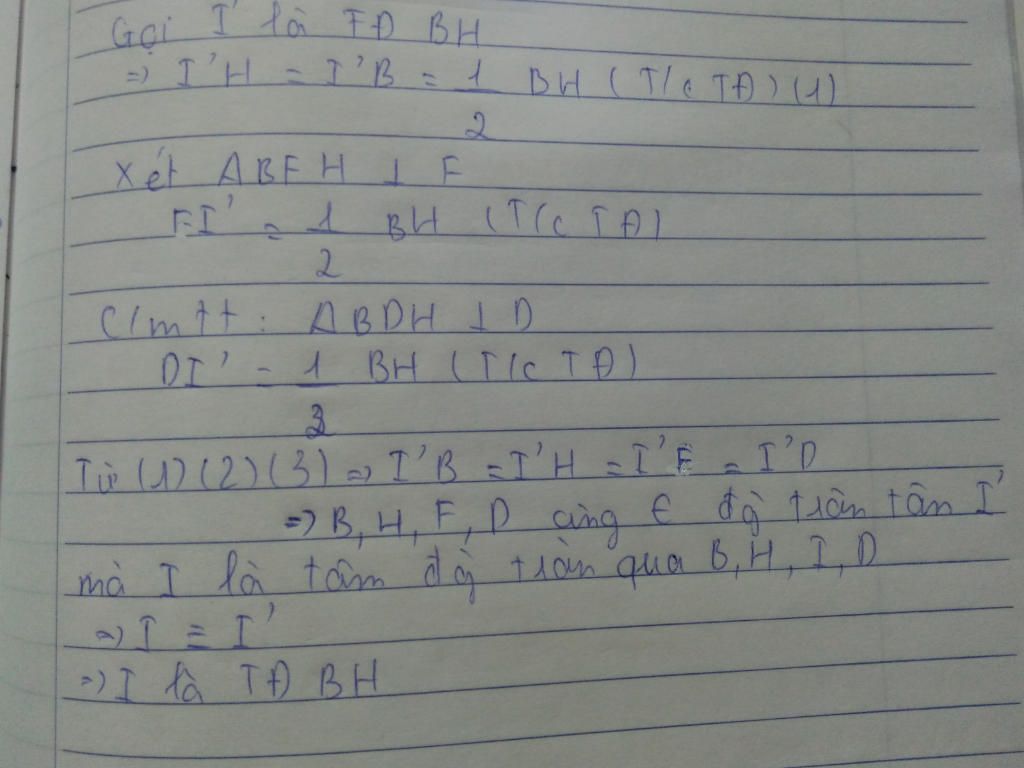 Gọi I' là TĐ BH
=> I'H = I'B = 1/2 BH (T/c TĐ) (1)
Xét ΔBFH ⊥ F
FI' = 1/2 BH (T/c TĐ)
C/m tt: ΔBDH ⊥ D
DI' = 1/2 BH (T/c TĐ)
Từ (1) (2) (3) => I'B = I'H = I'F = I'D
=> B, H, F, D cùng ∈ đg tròn tân I'
mà I là tâm đg tròn qua B, H, I, D
=> I ≡ I'
=> I là TĐ BH